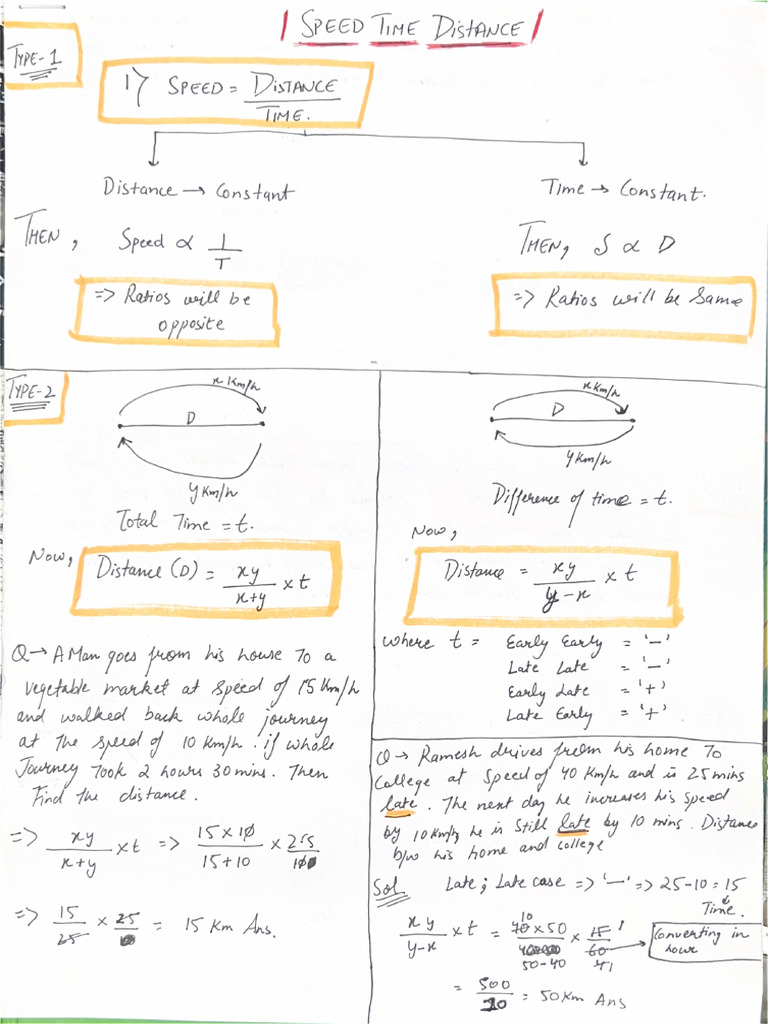 | SPEED TIME DISTANCE |
TYPE-1
1) SPEED = DISTANCE / TIME.
Distance → Constant
THEN, Speed ∝ 1/T
=> Ratios will be
opposite
Time → Constant.
THEN, S ∝ D
=> Ratios will be Same
TYPE-2
x Km/h
D
y Km/h
Total Time = t.
Now,
Distance (D) = xy / x+y × t
Q → A Man goes from his house To a
vegetable market at speed of 15 Km/h
and walked back whole journey
at The speed of 10 Km/h. if whole
Journey Took 2 hours 30 mins. Then
Find The distance.
=> xy / x+y × t => 15 × 10 / 15+10 × 25 / 10
=> 15 / 25 × 25 = 15 Km Ans.
x Km/h
D
y Km/h
Difference of time = t.
Now,
Distance = xy / y-x × t
where t = Early Early = '-'
Late Late = '-'
Early Late = '+'
Late Early = '+'
Q → Ramesh drives from his home To
College at Speed of 40 Km/h and is 25 mins
late. The next day he increases his speed
by 10 Km/h he is still late by 10 mins. Distance
b/w his home and college
Sol Late ; Late case => '-' => 25-10 = 15
Time.
xy / y-x × t = 40 × 50 / 50-40 × 15 / 60
10
1
41
Converting in
hour
= 500 / 10 = 50 Km Ans